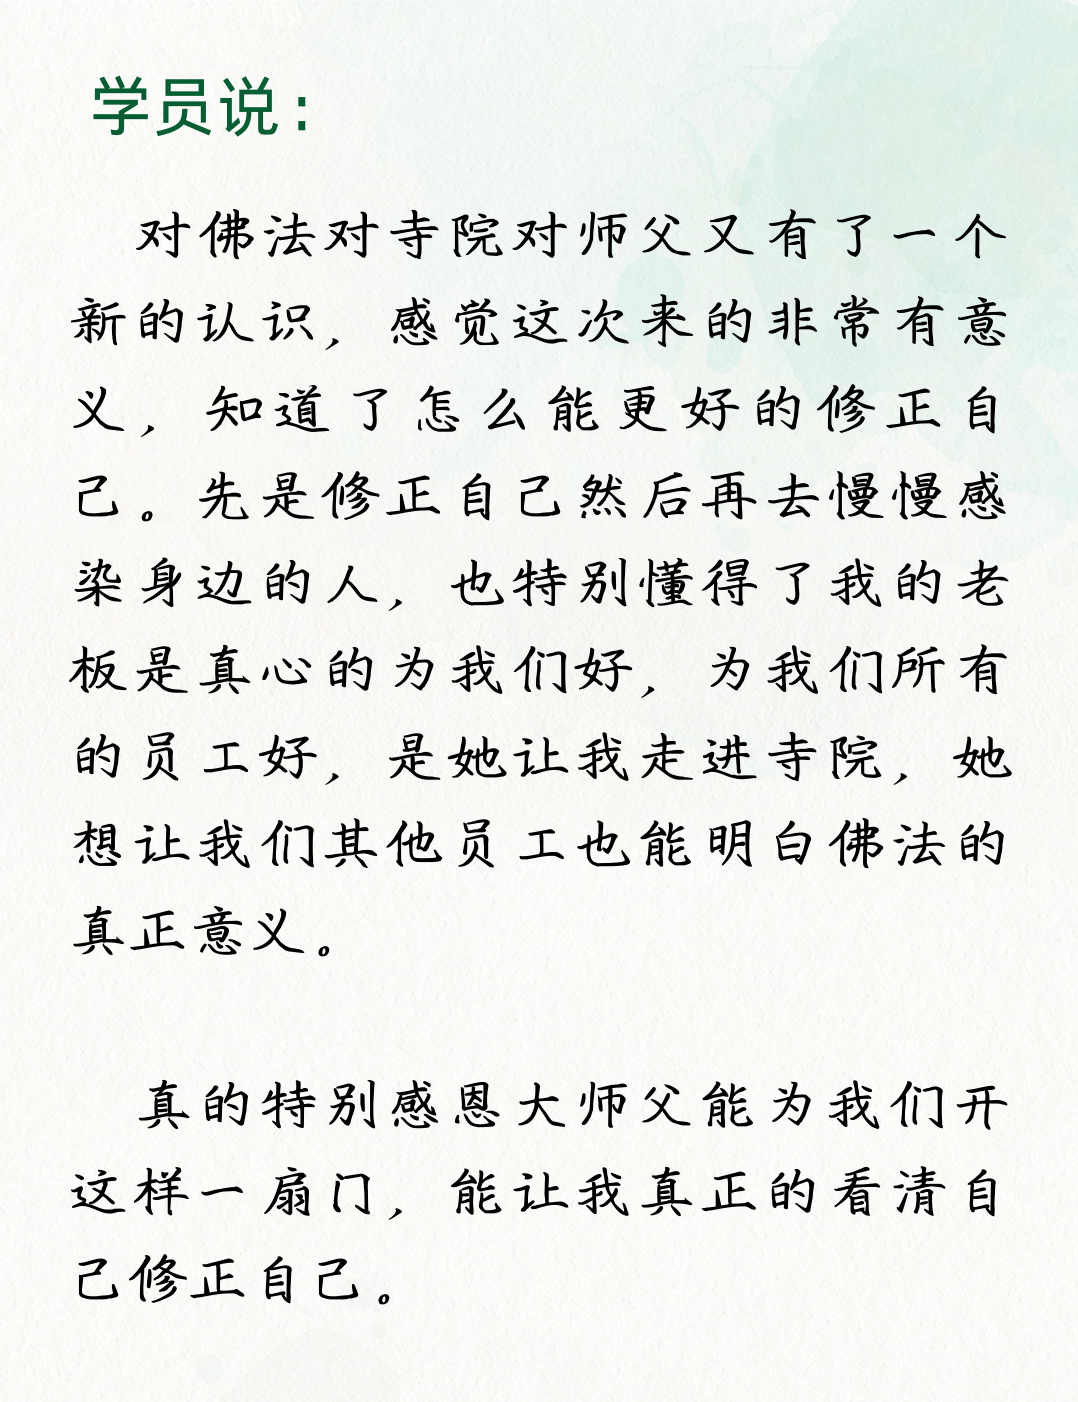 学员说：
对佛法对寺院对师父又有了一个
新的认识，感觉这次来的非常有意
义，知道了怎么能更好的修正自
己。先是修正自己然后再去慢慢感
染身边的人，也特别懂得了我的老
板是真心的为我们好，为我们所有
的员工好，是她让我走进寺院，她
想让我们其他员工也能明白佛法的
真正意义。
真的特别感恩大师父能为我们开
这样一扇门，能让我真正的看清自
己修正自己。